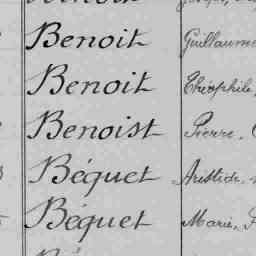 Benoit Guillaume
Benoit Théophile,
Benoist Pierre.
Béquet Aristide,
Béquet Marie,